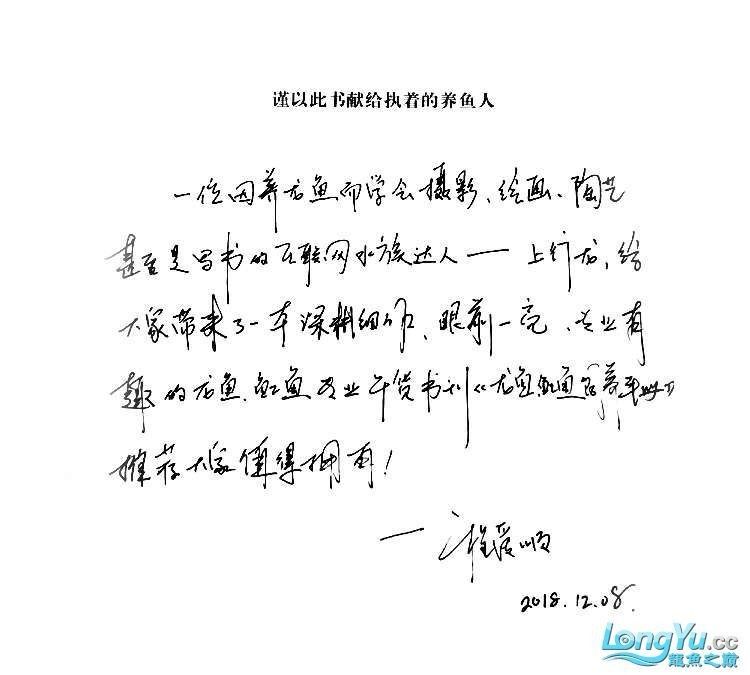 谨以此书献给执着的养鱼人
一位因养龙鱼而学会摄影、绘画、陶艺
甚至是写书的互联网水族达人——上行龙,给
大家带来了一本深耕细作、眼前一亮、专业有
趣的龙鱼、魟鱼专业干货书刊《龙鱼魟鱼饲养手册》
推荐大家值得拥有!
——程爱顺
2018.12.08.
LongYu.cc
龍魚之巔